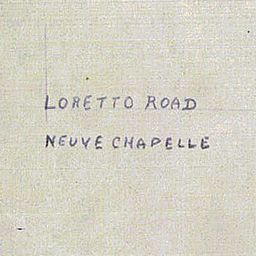 LORETTO ROAD
NEUVE CHAPELLE